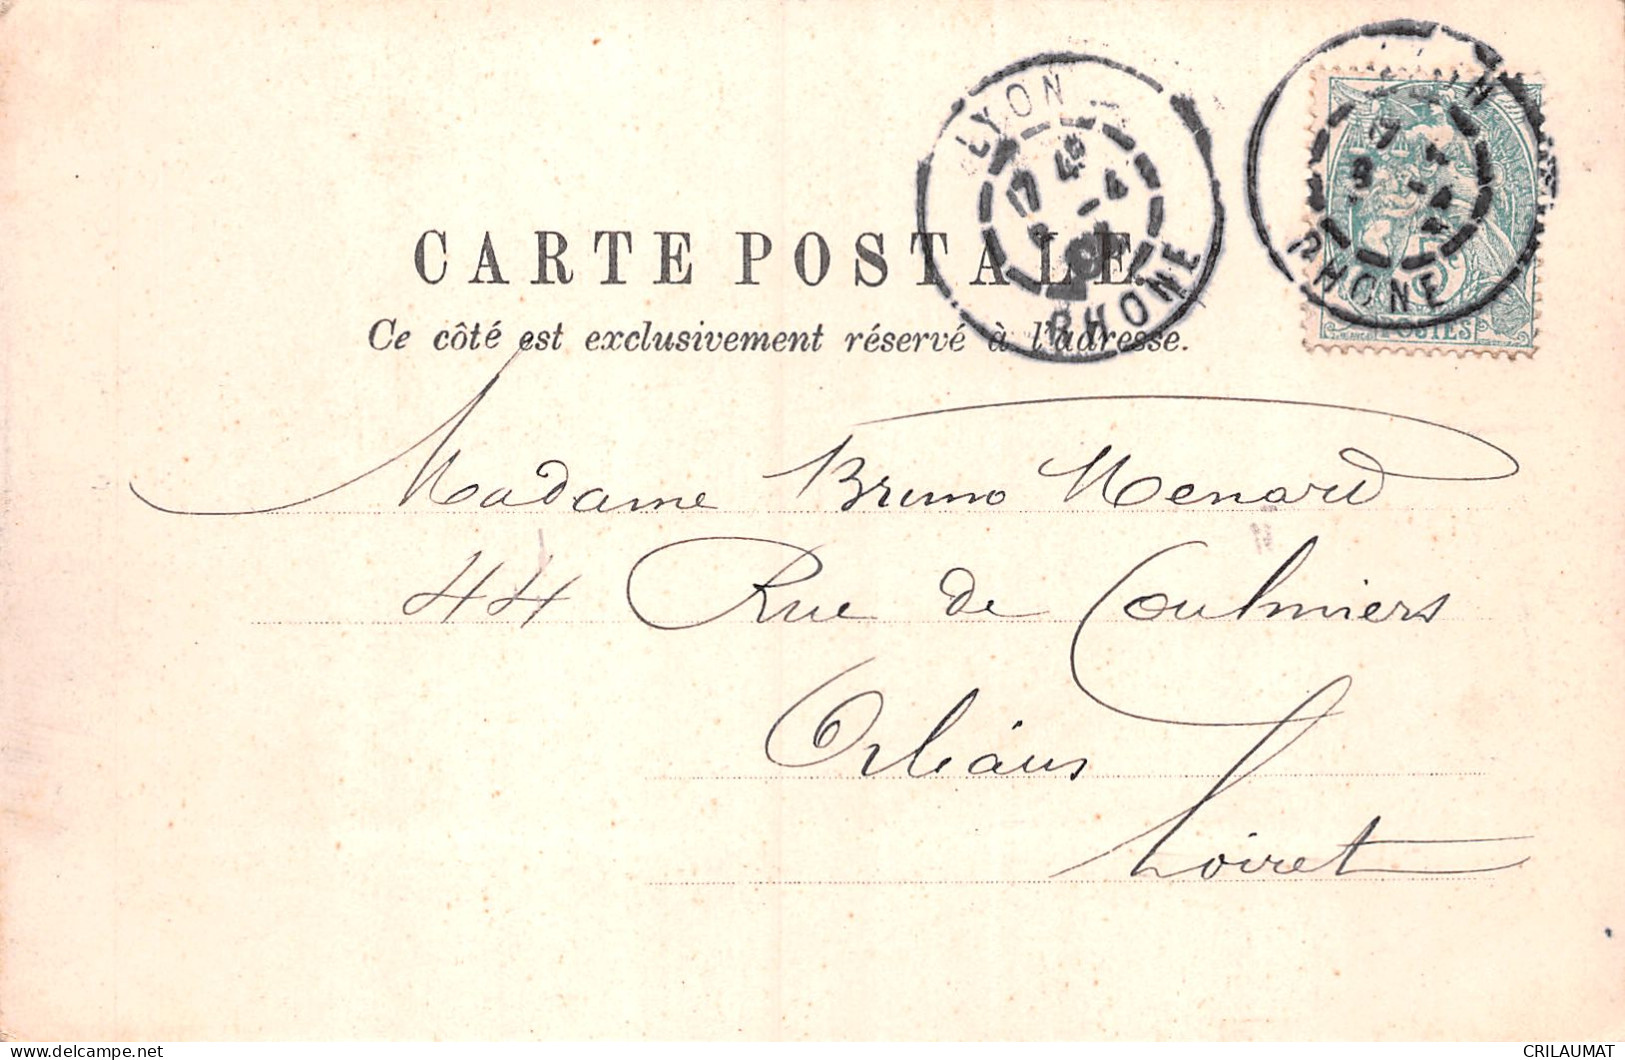 LYON
17 4
8 -4
RHONE
RHONE
5c
POSTES
CARTE POSTALE.
Ce côté est exclusivement réservé à l'adresse.
Madame Bruno Menard
44 Rue de Coulmiers
Orléans
Loiret
delcampe.net
CRILAUMAT